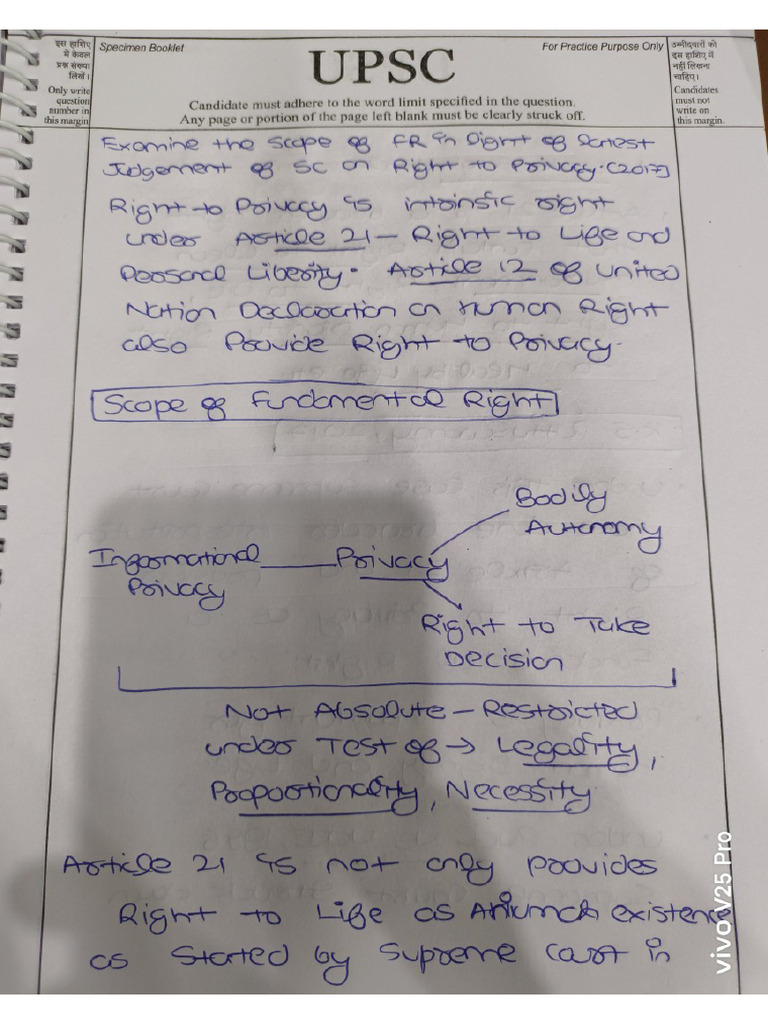 इस हाशिए में केवल प्रश्न संख्या लिखें।
Only write question number in this margin
Specimen Booklet
For Practice Purpose Only
UPSC
Candidate must adhere to the word limit specified in the question.
Any page or portion of the page left blank must be clearly struck off.
उम्मीदवारों को इस हाशिए में नहीं लिखना चाहिए।
Candidates must not write on this margin.
Examine the Scope of FR in Light of latest
Judgement of SC on Right to Privacy. (2017)
Right to Privacy is intrinsic right
under Article 21 – Right to Life and
Personal Liberty. Article 12 of United
Nation Declaration on Human Right
also Provide Right to Privacy.
Scope of Fundamental Right
Bodily
Autonomy
Informational Privacy
Privacy
Right to Take
Decision
Not Absolute – Restricted
under TEST of → Legality,
Proportionality, Necessity
Article 21 is not only provides
Right to Life as existence
as Started by Supreme Court in
vivo V25 Pro